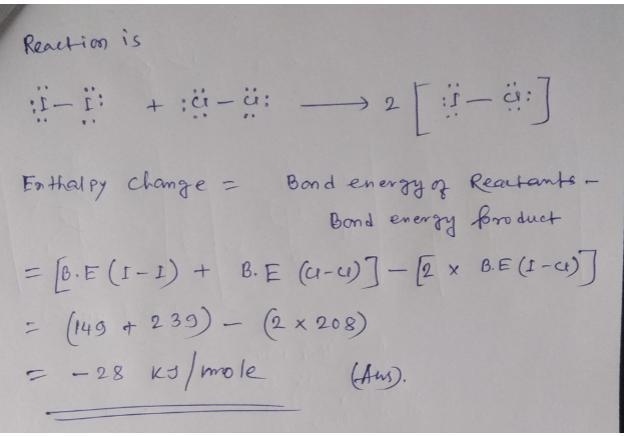 Reaction is
:Ï — Ï: + :C̈l — C̈l: ⟶ 2 [ :Ï — C̈l: ]
Enthalpy change = Bond energy of Reactants -
Bond energy product
= [B.E (I-I) + B.E (Cl-Cl)] - [2 x B.E (I-Cl)]
= (149 + 239) - (2 x 208)
= -28 KJ/mole (Ans).